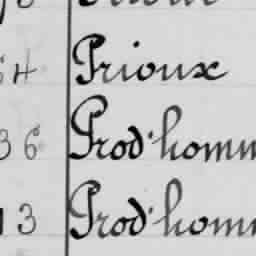 54 Prioux
36 Prod'hom
13 Prod'hom